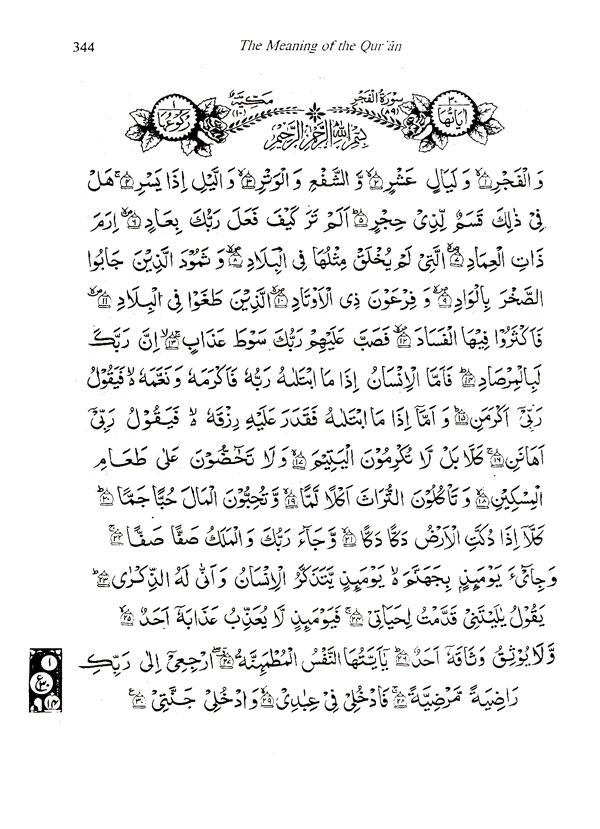 344 The Meaning of the Qur'ān
رکوعها ١ مکیة (١٠) سورة الفجر (٨٩) اٰیاتها ٣٠
بسم الله الرحمن الرحيم
وَالْفَجْرِ ۙ﴿١﴾ وَ لَيَالٍ عَشْرٍ ۙ﴿٢﴾ وَّ الشَّفْعِ وَ الْوَتْرِ ۙ﴿٣﴾ وَ الَّيْلِ اِذَا يَسْرِ ۚ﴿٤﴾ هَلْ
فِیْ ذٰلِكَ قَسَمٌ لِّذِیْ حِجْرٍ ؕ﴿٥﴾ اَلَمْ تَرَ كَيْفَ فَعَلَ رَبُّكَ بِعَادٍ ۪ۙ﴿٦﴾ اِرَمَ
ذَاتِ الْعِمَادِ ۪ۙ﴿٧﴾ الَّتِیْ لَمْ يُخْلَقْ مِثْلُهَا فِی الْبِلَادِ ۪ۙ﴿٨﴾ وَ ثَمُوْدَ الَّذِيْنَ جَابُوا
الصَّخْرَ بِالْوَادِ ۪ۙ﴿٩﴾ وَ فِرْعَوْنَ ذِی الْاَوْتَادِ ۪ۙ﴿١٠﴾ الَّذِيْنَ طَغَوْا فِی الْبِلَادِ ۪ۙ﴿١١﴾
فَاَكْثَرُوْا فِيْهَا الْفَسَادَ ۪ۙ﴿١٢﴾ فَصَبَّ عَلَيْهِمْ رَبُّكَ سَوْطَ عَذَابٍ ۚۙ﴿١٣﴾ اِنَّ رَبَّكَ
لَبِالْمِرْصَادِ ؕ﴿١٤﴾ فَاَمَّا الْاِنْسَانُ اِذَا مَا ابْتَلٰىهُ رَبُّهٗ فَاَكْرَمَهٗ وَ نَعَّمَهٗ ۙ۬ فَيَقُوْلُ
رَبِّیْۤ اَكْرَمَنِ ؕ﴿١٥﴾ وَ اَمَّاۤ اِذَا مَا ابْتَلٰىهُ فَقَدَرَ عَلَيْهِ رِزْقَهٗ ۙ۬ فَيَقُوْلُ رَبِّیْۤ
اَهَانَنِ ۚ﴿١٦﴾ كَلَّا بَلْ لَّا تُكْرِمُوْنَ الْيَتِيْمَ ۙ﴿١٧﴾ وَ لَا تَحٰٓضُّوْنَ عَلٰی طَعَامِ
الْمِسْكِيْنِ ۙ﴿١٨﴾ وَ تَاْكُلُوْنَ التُّرَاثَ اَكْلًا لَّمًّا ۙ﴿١٩﴾ وَّ تُحِبُّوْنَ الْمَالَ حُبًّا جَمًّا ؕ﴿٢٠﴾
كَلَّاۤ اِذَا دُكَّتِ الْاَرْضُ دَكًّا دَكًّا ۙ﴿٢١﴾ وَّ جَآءَ رَبُّكَ وَ الْمَلَكُ صَفًّا صَفًّا ۚ﴿٢٢﴾
وَ جِایْٓءَ يَوْمَئِذٍۭ بِجَهَنَّمَ ۙ۬ يَوْمَئِذٍ يَّتَذَكَّرُ الْاِنْسَانُ وَ اَنّٰی لَهُ الذِّكْرٰی ؕ﴿٢٣﴾
يَقُوْلُ يٰلَيْتَنِیْ قَدَّمْتُ لِحَيَاتِیْ ۚ﴿٢٤﴾ فَيَوْمَئِذٍ لَّا يُعَذِّبُ عَذَابَهٗۤ اَحَدٌ ۙ﴿٢٥﴾
وَّ لَا يُوْثِقُ وَثَاقَهٗۤ اَحَدٌ ؕ﴿٢٦﴾ يٰۤاَيَّتُهَا النَّفْسُ الْمُطْمَئِنَّةُ ۖۗ﴿٢٧﴾ ارْجِعِیْۤ اِلٰی رَبِّكِ
رَاضِيَةً مَّرْضِيَّةً ۚ﴿٢٨﴾ فَادْخُلِیْ فِیْ عِبٰدِیْ ۙ﴿٢٩﴾ وَ ادْخُلِیْ جَنَّتِیْ ﴿٣٠﴾ ع
١
ع
٣٠
١٤